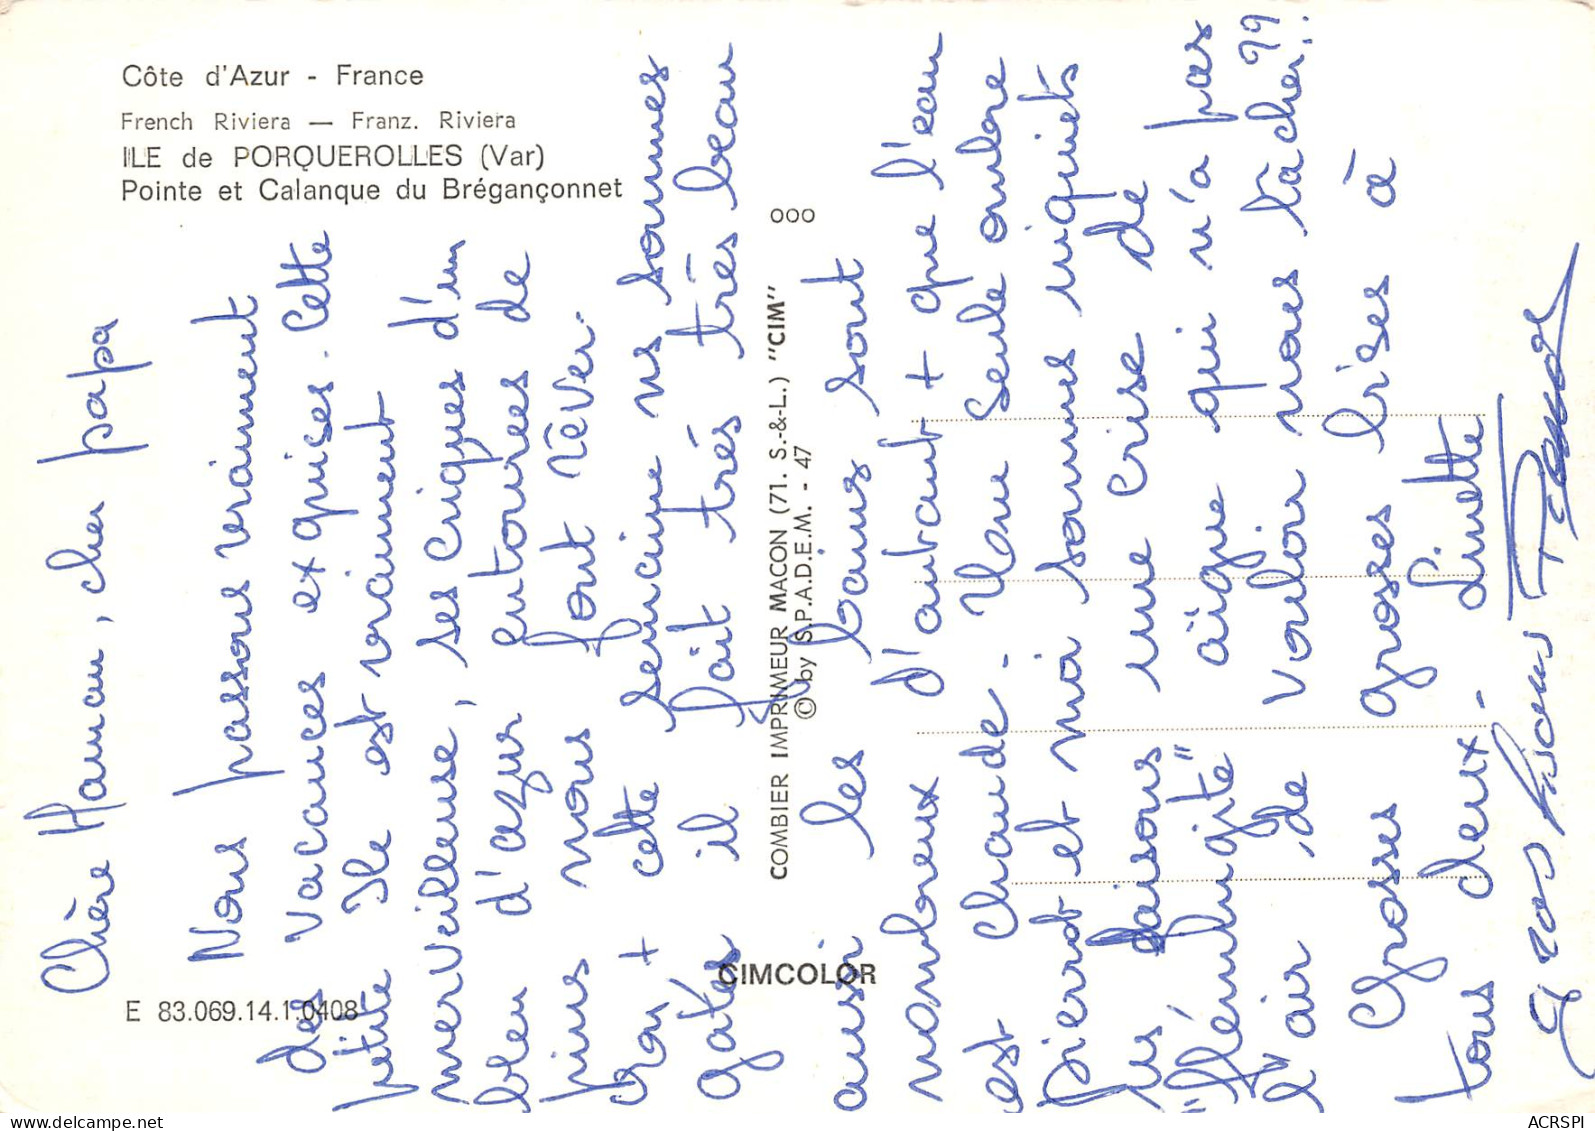 Côte d'Azur - France
French Riviera — Franz. Riviera
ILE de PORQUEROLLES (Var)
Pointe et Calanque du Brégançonnet
E 83.069.14.1.0408
CIMCOLOR
COMBIER IMPRIMEUR MACON (71. S.-&-L.) "CIM"
© by S.P.A.D.E.M. - 47
000
Chère Maman, cher papa
Nous passons vraiment
des vacances exquises. Cette
petite Ile est vraiment
merveilleuse, ses criques d'un
bleu d'azur entourées de
pins nous font rêver.
Bon + cette semaine ns sommes
gatés il fait très très beau
aussi les bains sont
nombreux d'autant + que l'eau
est chaude. Une seule ombre
Pierrot et moi sommes inquiets
ns faisons une crise de
"flémingite" aigue qui n'a pas
l'air de vouloir nous lâcher !!
Grosses grosses bises à
tous deux. Linette
gros bisous